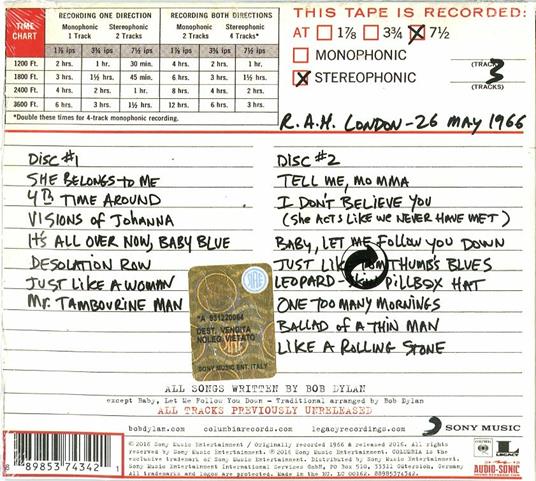 TIME CHART
RECORDING ONE DIRECTION
Monophonic 1 Track
Stereophonic 2 Tracks
RECORDING BOTH DIRECTIONS
Monophonic 2 Tracks
Stereophonic 4 Tracks*
1⅞ ips 3¾ ips 7½ ips 1⅞ ips 3¾ ips 7½ ips
1200 Ft. 2 hrs. 1 hr. 30 min. 4 hrs. 2 hrs. 1 hr.
1800 Ft. 3 hrs. 1½ hrs. 45 min. 6 hrs. 3 hrs. 1½ hrs.
2400 Ft. 4 hrs. 2 hrs. 1 hr. 8 hrs. 4 hrs. 2 hrs.
3600 Ft. 6 hrs. 3 hrs. 1½ hrs. 12 hrs. 6 hrs. 3 hrs.
*Double these times for 4-track monophonic recording.
THIS TAPE IS RECORDED:
AT 1⅞ 3¾ 7½
MONOPHONIC
(TRACK)
STEREOPHONIC 3
(TRACKS)
R.A.H. LONDON - 26 MAY 1966
DISC #1
SHE BELONGS TO ME
4TH TIME AROUND
VISIONS of JOHANNA
IT'S ALL OVER NOW, BABY BLUE
DESOLATION ROW
JUST LIKE A WOMAN
Mr. TAMBOURINE MAN
DISC #2
TELL ME, MOMMA
I DON'T BELIEVE YOU
(She ACTS LIKE WE NEVER HAVE MET)
BABY, LET ME FOLLOW YOU DOWN
JUST LIKE TOM THUMB'S BLUES
LEOPARD-SKIN PILLBOX HAT
ONE TOO MANY MORNINGS
BALLAD of A THIN MAN
LIKE A ROLLING STONE
*A 931220064
DEST. VENDITA
NOLEG. VIETATO
SONY MUSIC ENT. ITALY
ALL SONGS WRITTEN BY BOB DYLAN
except Baby, Let Me Follow You Down - Traditional arranged by Bob Dylan
ALL TRACKS PREVIOUSLY UNRELEASED
bobdylan.com columbiarecords.com legacyrecordings.com SONY MUSIC
8 89853 74342 1
℗ 2016 Sony Music Entertainment / Originally recorded 1966 & released 2016. All rights
reserved by Sony Music Entertainment. © 2016 Sony Music Entertainment. COLUMBIA is the
exclusive trademark of Sony Music Entertainment. Distributed by Sony Music Entertainment.
Sony Music Entertainment International Services GmbH, PO Box 510, 33311 Gütersloh, Germany
All trademarks and logos are protected. Made in the EU. LC 00162. 88985374342.
COLUMBIA
LEGACY
AUDIO-SONIC